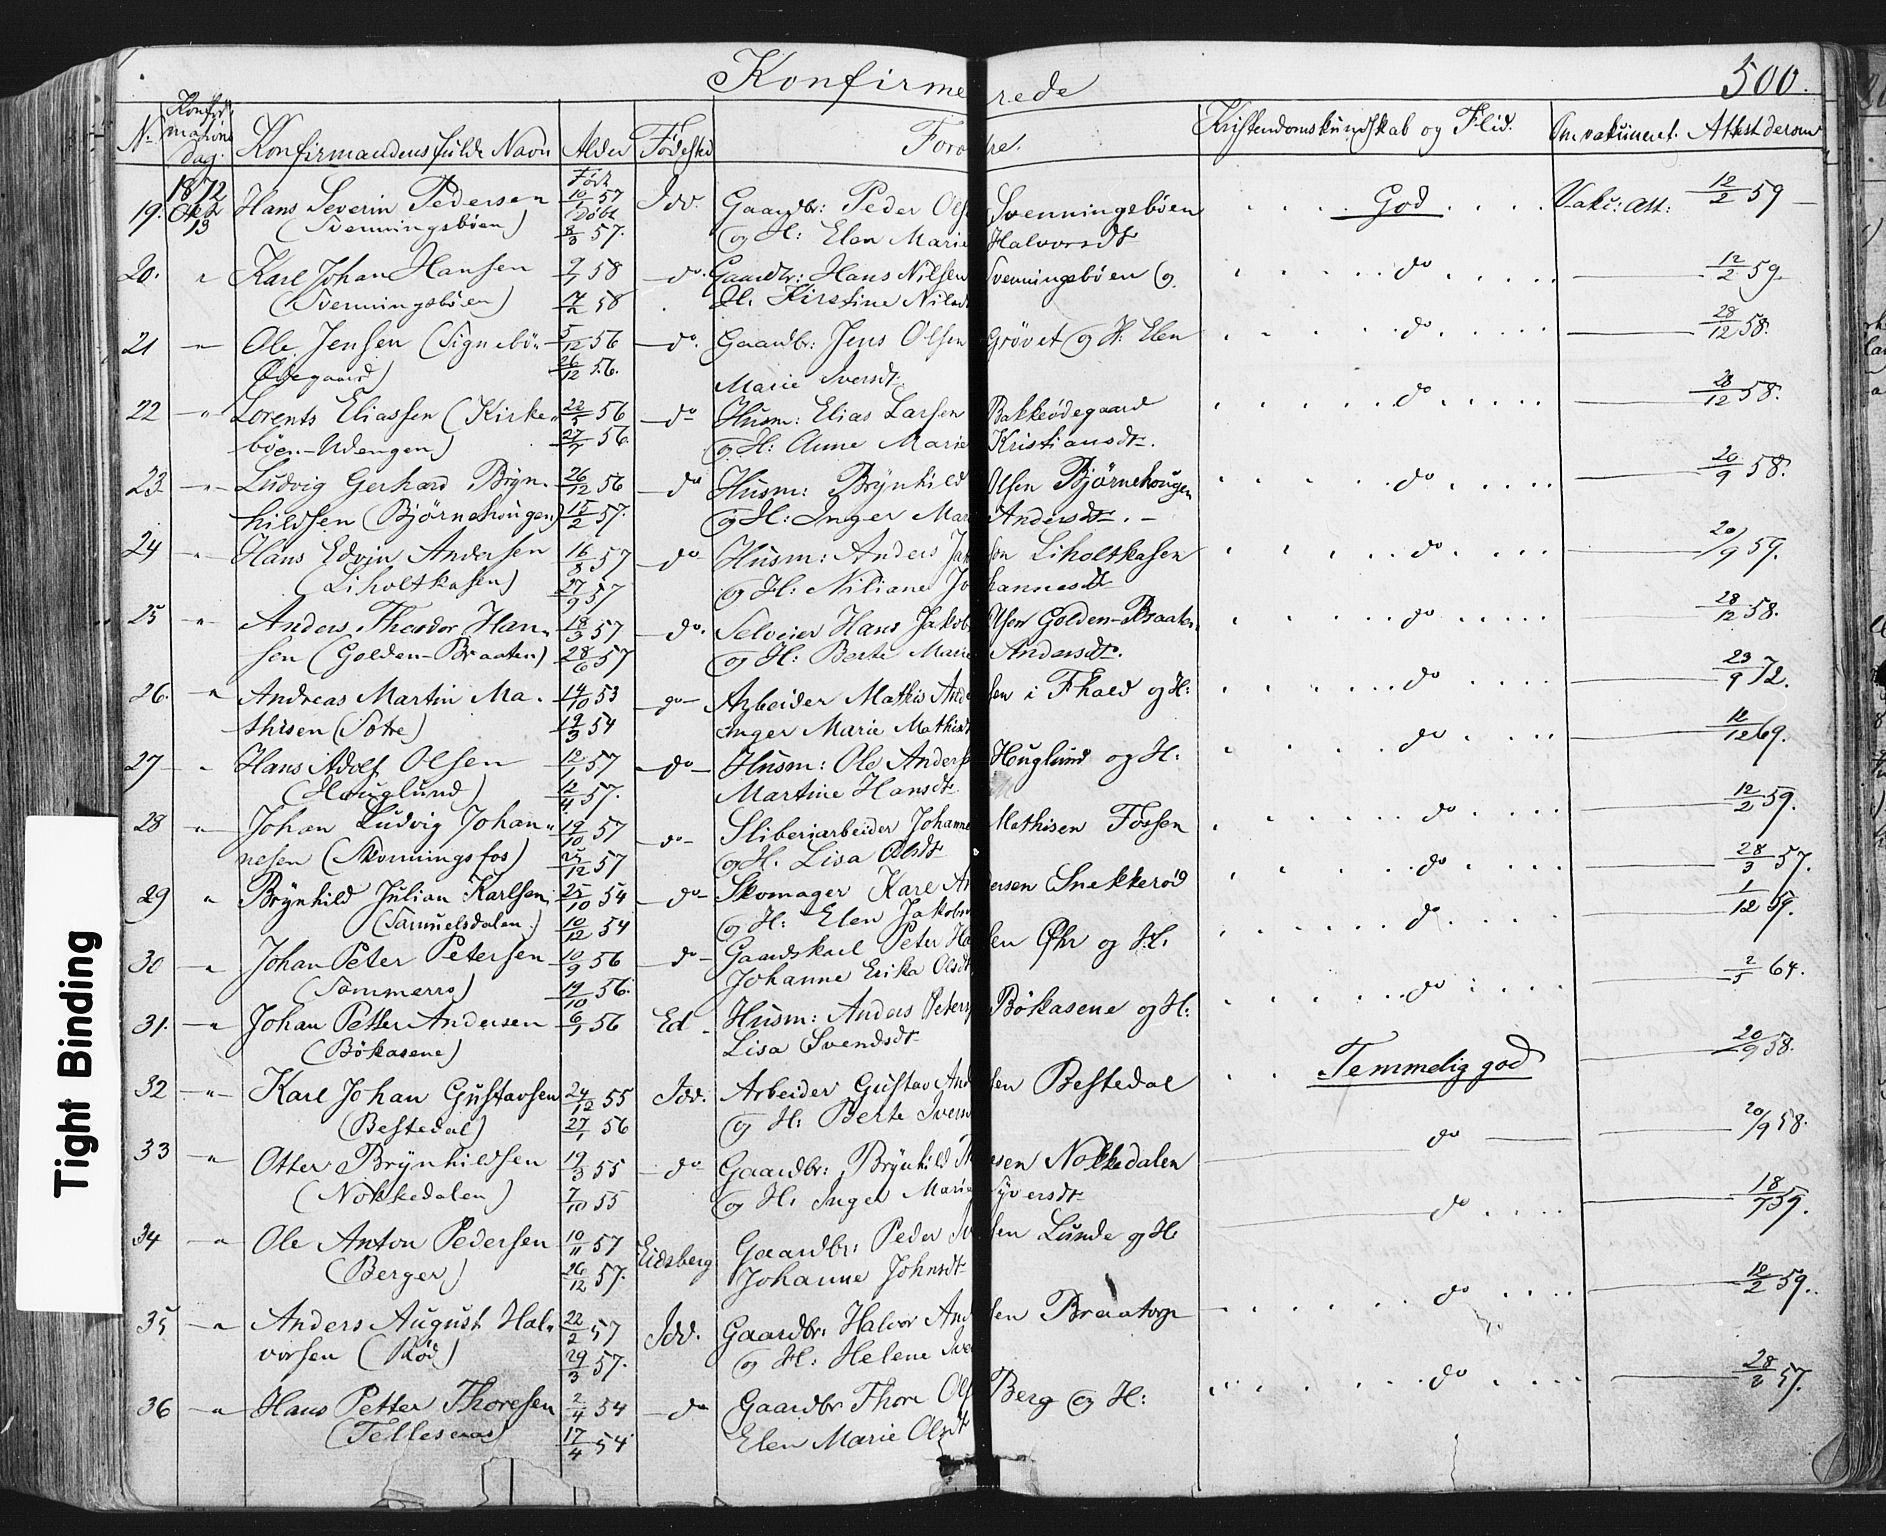 Konfirmerede
500.
No. Konfirmations dag. Konfirmandens fulde Navn Alder Fødested Forældre. Kristendomskundskab og Flid. Om vakcineret. Attest derom
1872 Født
19. Okt 13 Hans Severin Pedersen 10/1 57 Idd. Gaardbr: Peder Olsen Svenningsbøen God Vakc: att: 12/2 59
(Svenningsbøen) Døbt 8/3 57. og H: Elen Marie Halvorsdt
20. " Karl Johan Hansen 9/1 58 do. Gaardbr: Hans Nilsen Svenningsbøen og do 12/2 59
(Svenningsbøen) 17/2 58 H. Kirstine Nilsdt
21 " Ole Jensen (Signebø- 5/12 56 do. Gaardbr: Jens Olsen Grøvet og H: Elen do 28/12 58.
Ødegaard) 26/12 56. Marie Iversdt.
22 " Lorents Eliassen (Kirke- 22/5 56 do Husm: Elias Larsen Bakkeødegaard do 28/12 58.
bøen-Udengen) 27/7 56. og H: Anne Marie Kristiansdt.
23. " Ludvig Gerhard Bryn- 26/12 56 do Husm: Brynhild Olsen Bjørnehougen do 20/9 58.
hildsen (Bjørnehougen) 15/2 57. og H: Inger Marie Andersdt.
24 " Hans Edvin Andersen 16/8 57 do Husm: Anders Jakobsen Liholtkasen do 20/9 59.
(Liholtkasen) 27/9 57 og H: Niliane Johannesdt
25 " Anders Theodor Han- 18/3 57 do. Selveier Hans Jakob Olsen Golden-Braaten do 28/12 58.
sen (Golden-Braaten) 28/6 57 og H: Berte Marie Andersdt.
26. " Andreas Martin Ma- 14/10 53 do Arbeider Mathis Andersen i Fhald og H: do 23/9 72.
thisen (Sotre) 19/3 54 Inger Marie Mathisdt
27 " Hans Adolf Olsen 12/1 57 do Husm: Ole Anders Houglund og H: do 12/12 69.
(Houglund) 12/4 57. Martine Hansdt.
28 " Johan Ludvig Johan- 19/10 57 do Sliberiarbeider Johannes Mathisen Fossen do 12/2 59.
nesen (Skonningsfos) 25/12 57 og H. Lisa Olsdt
29 " Brynhild Julian Karlsen 25/10 54 do Skomager Karl Andersen Snekkerød do 28/3 57.
(Samuelsdalen.) 10/12 54 og H: Elen Jakobs
30 " Johan Peter Petersen 10/9 56 do Gaardskarl Peter Hansen Øhr og H: do 1/12 59.
(Sommerro) 19/10 56. Johanne Erika Olsdt
31. " Johan Petter Andersen 6/1 56 Ed Husm: Anders Peters Bökasene og H: do 2/5 64.
(Bökasene) Lisa Svendsdt
32 " Karl Johan Gustavsen 24/12 55 Idd. Arbeider Gustav Andersen Bestedal Temmelig god 20/9 58.
(Bestedal) 27/1 56 og H: Berte Ivers
33 " Otter Brynhildsen 19/3 55 do Gaardbr: Brynhild Nokkedalen do 20/9 58.
(Nokkedalen) 7/10 55 og H: Inger Marie Syversdt
34 " Ole Anton Pedersen 10/11 57 Eidsberg Gaardbr: Peder Lunde og H: do 18/7 59.
(Berger) 26/12 57. Johanne Johnsdt
35 " Anders August Hal- 22/2 57 Idd. Gaardbr: Halvor Andersen Braatorp do 12/2 59.
vorsen (Rød) 29/3 57. og H: Helene Iver
36 " Hans Petter Thoresen 2/4 54 do Gaardbr Thore Olsen Berg og H: do 28/8 57.
(Fellesnas) 17/4 54 Elen Marie Olsdt
Tight Binding